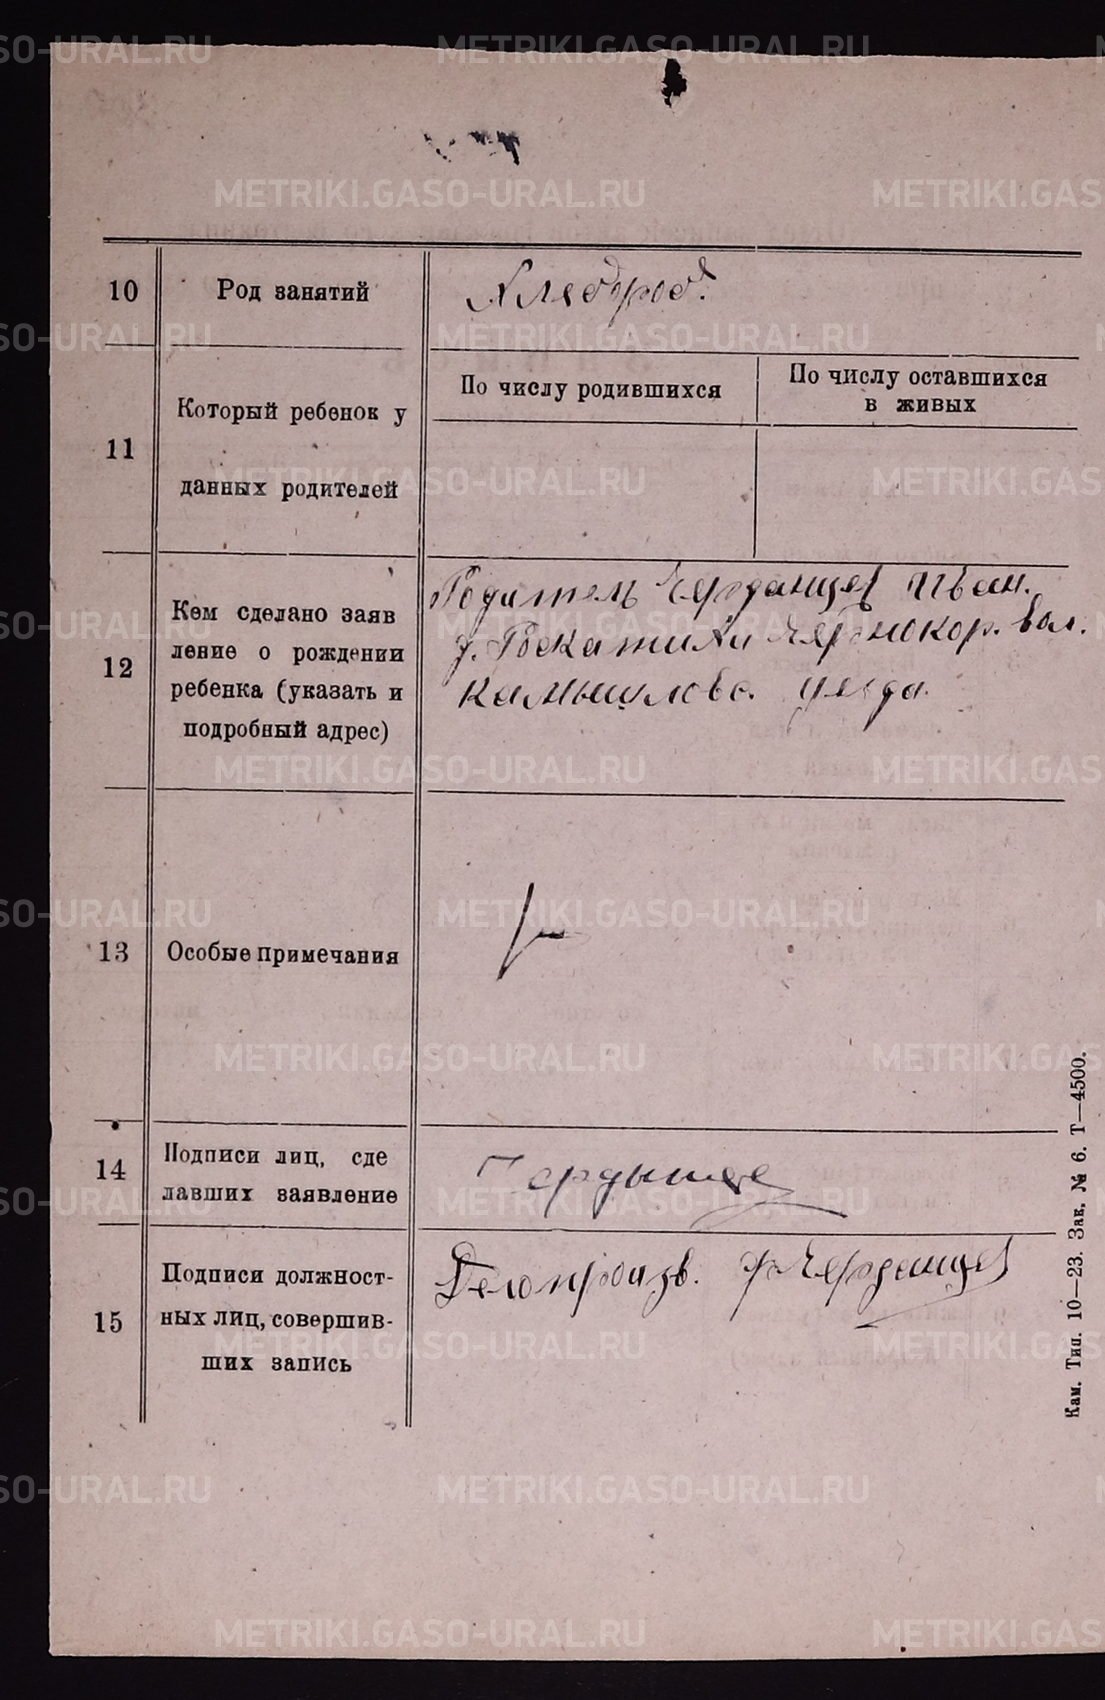 10 Род занятий Хлебороб.
11 Который ребенок у данных родителей
По числу родившихся
По числу оставшихся
в живых
12 Кем сделано заяв
ление о рождении
ребенка (указать и
подробный адрес)
Родитель Черданцев Иван.
д. Черноков. вол.
Камышловс. уезда.
13 Особые примечания
14 Подписи лиц, сде
лавших заявление
15 Подписи должност-
ных лиц, совершив-
ших запись
Делопроизв. Черданцев
Кам. Тип. 10—23. Зак. № 6. Т—4500.
METRIKI.GASO-URAL.RU